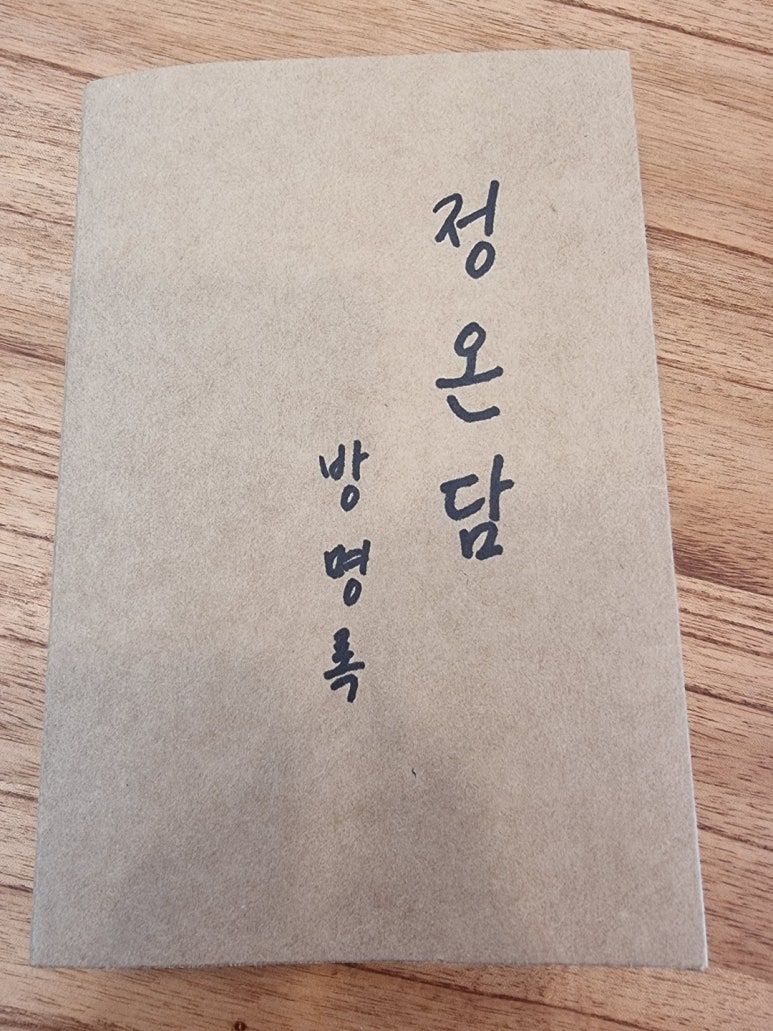 정온담
방명록